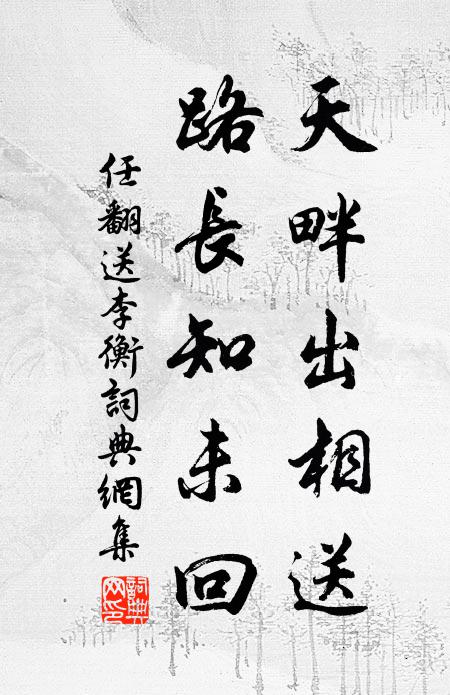 天畔出相送
路長知未回
任翻送李衡詞典網集
詞典
网印